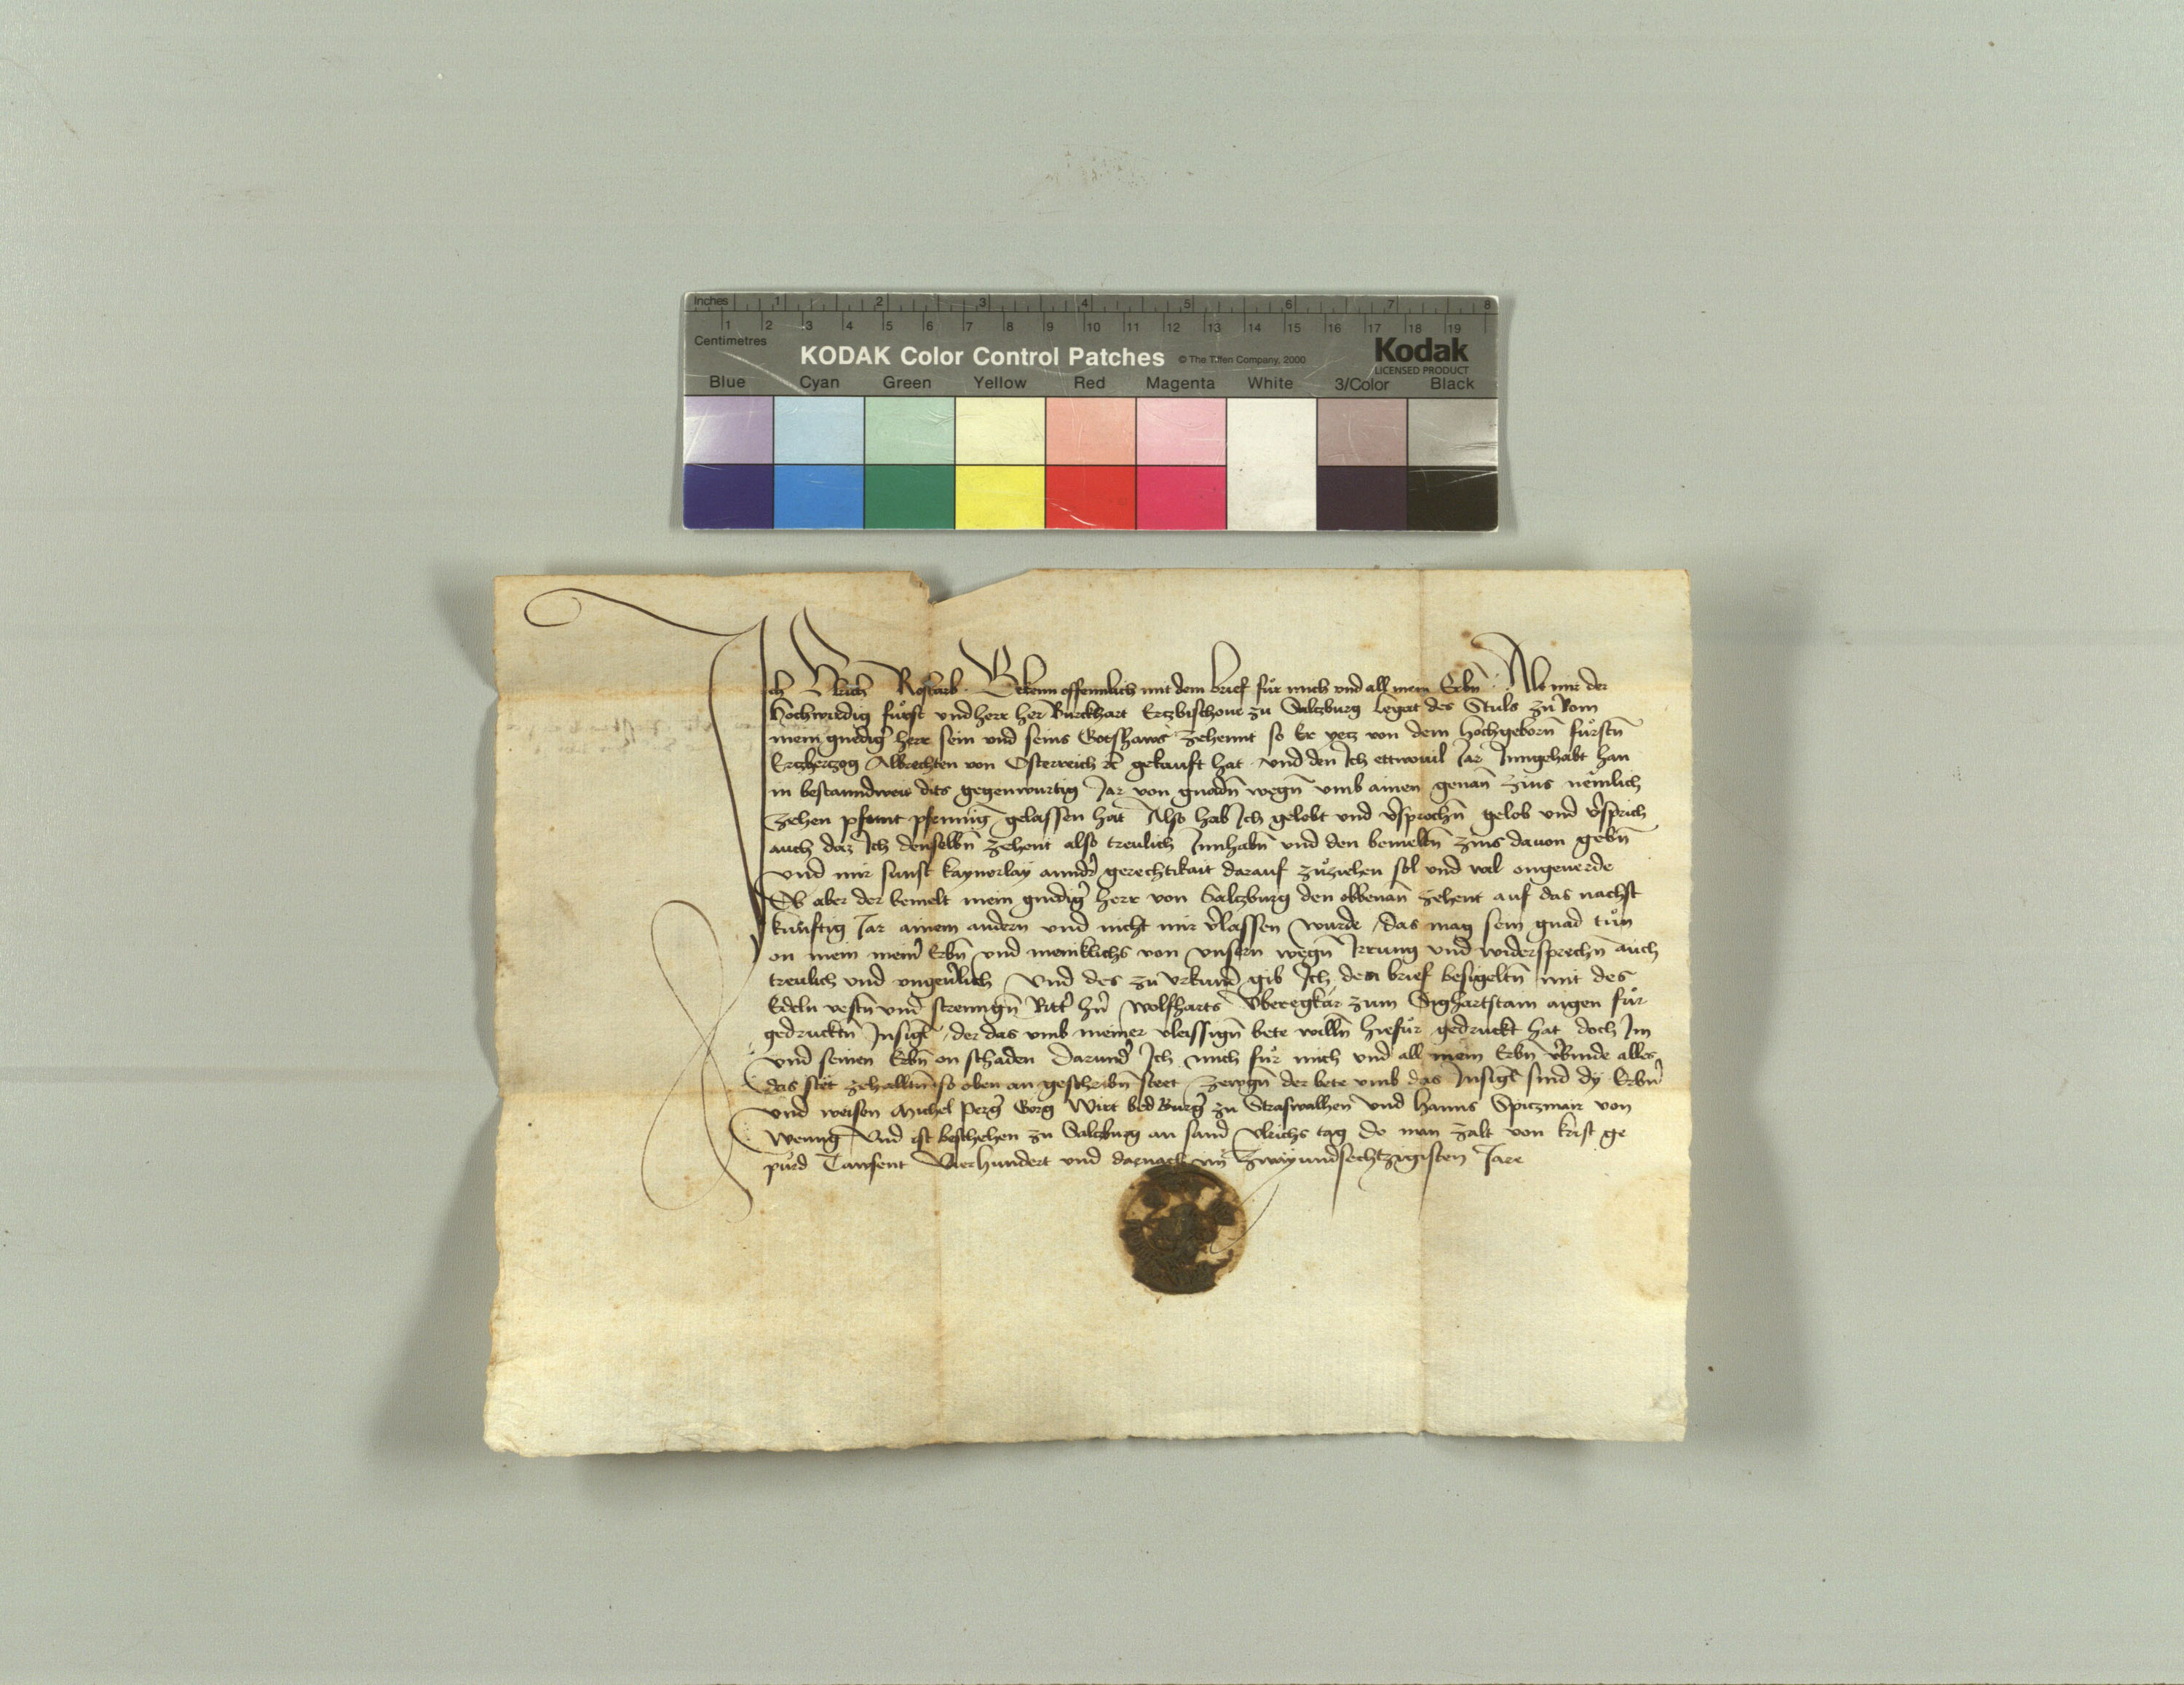 Inches 1 2 3 4 5 6 7 8
1 2 3 4 5 6 7 8 9 10 11 12 13 14 15 16 17 18 19
Centimetres
KODAK Color Control Patches © The Tiffen Company, 2000 Kodak
LICENSED PRODUCT
Blue Cyan Green Yellow Red Magenta White 3/Color Black
Ich Ulrich Bekenn offennlich mit dem brief fuͦr mich vnd all mein Erbn̄ Als mir der
hochwirdig fuͦrst vnd herr her Burckhart Ertzbischoue zu Saltzburg legat des Stuls zu Rom
mein gnedigʼ herr sein vnd seins Gotshaws zehennt so Er yetz von dem hochgebornn̄ fuͦrstn̄
Ertzhertzog Albrechten von Osterreich ꝛc̄ gekauft hat vnd den Ich ettwouil Jar Inngehabt han
in bestanndweis dits gegenwurtig Jar von gnadn̄ wegn̄ vmb ainen genan̄ zins nemlich
zehen pfunt pfenning gelassen hat Also hab Ich gelobt vnd vʼsprochn̄ gelob vnd vʼsprich
auch daz Ich denselbn̄ zehent also treulich Innhabn̄ vnd den bemeltn̄ zins dauon gebn̄
vnd mir sunst kaynerlay anndʼ gerechtikait darauf zuͦziehen sol vnd wil ongeuerde
Ob aber der bemelt mein gnedigʼ herr von Saltzburg den obbenan̄ zehent auf das nachst
kunftig Jar ainem andern vnd nicht mir vʼlassen wurde / das mag sein gnad tuͦn
on mein meinʼ Erbn̄ vnd meniklichs von vnsern wegn̄ Irrung vnd widersprechn̄ auch
treulich vnd vngeuʼlich Vnd des zu vrkund gib Ich den brief besigeltn̄ mit des
Edeln vestn̄ vnd strenngn̄ Rittʼ hʼn Wolfharts Vberegkär zum Sighartstain aigen fuͦr
gedrucktn̄ Insigl / der das vmb meiner vleissign̄ bete willn̄ hiefuͦr gedruckt hat doch Im
vnd seinen Erbn̄ on schaden Darundʼ Ich mich fuͦr mich vnd all mein Erbn̄ vʼbinde alles
das stet zehalltn̄ so oben an geschribn̄ steet zewgn̄ der bete vmb das Insigl sind dy Erbnʼ
vnd weisen Michel Pergʼ Gorg Wirt bed Burgʼ zu Straswalhen vnd Hanns Spitzmair von
Wenng Vnd ist beschehen zu Saltzburg an sand Vlrichs tag do man zalt von krist ge
puͦrd Tawsent Vierhundert vnd darnach im zwayundsechtzigisten Jare